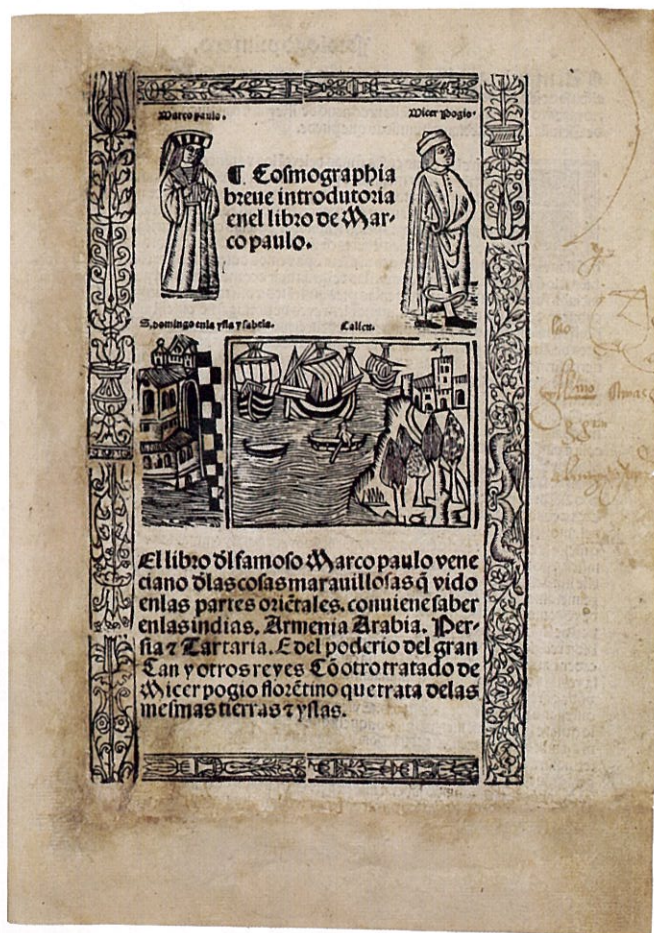 Marco paulo.
Micer Pogio.
¶ Cosmographia
breue introdutoria
enel libro de Mar-
co paulo.
S. domingo enla ysla ysabela.
Calicu.
El libro dl famoso Marco paulo vene
ciano dlas cosas marauillosas q̃ vido
enlas partes oriẽtales. conuiene saber
enlas indias. Armenia Arabia. Per-
sia ⁊ Tartaria. E del poderio del gran
Can y otros reyes Cõ otro tratado de
Micer pogio florẽtino que trata delas
mesmas tierras ⁊ yslas.